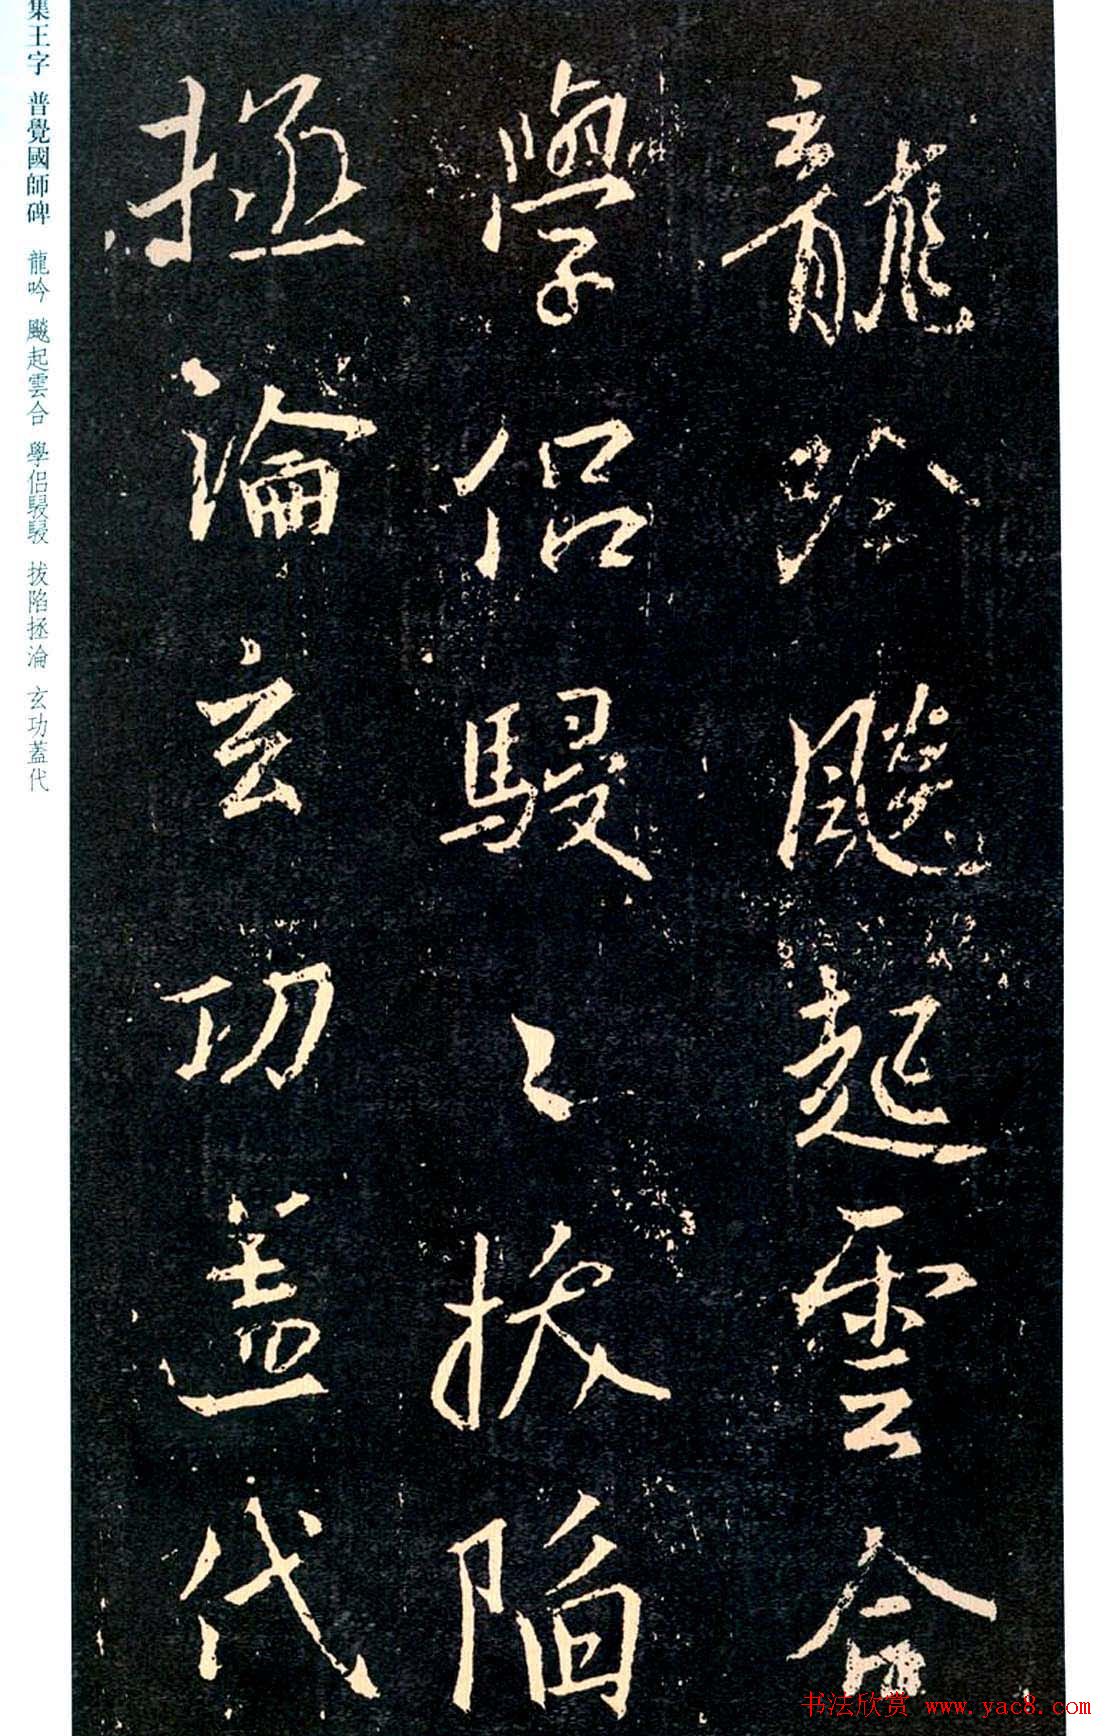 龍吟飈起雲合
學侣駸〻拔陷
拯淪玄功盖代
集王字 普覺國師碑 龍吟 飈起雲合 學侣駸駸 拔陷拯淪 玄功蓋代
书法欣赏 www.yac8.com